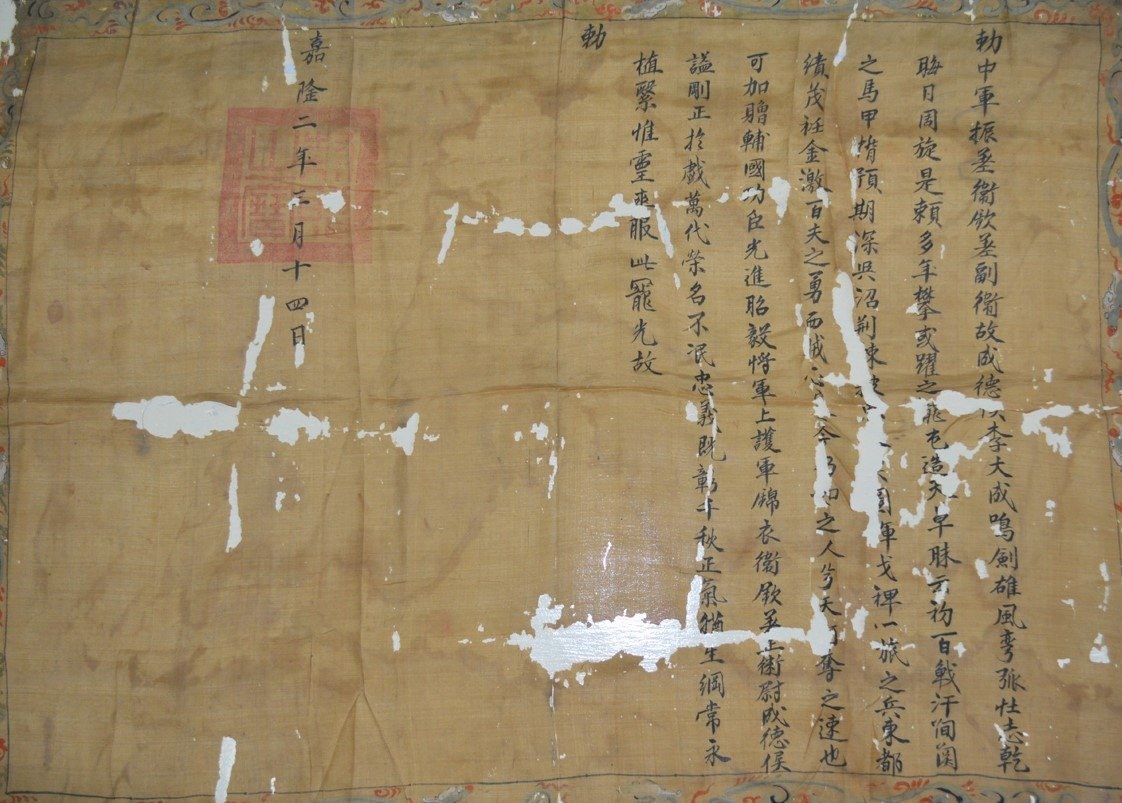 勅中軍振基衛欽差副衛故成德侯李大成鳴劍雄風彎弧壯志乾
晦日周旋是頼多年攀或躍之造天草昧云初百戰汗
之馬甲胄預期深吳沼荊軍戈裨一旅之兵東都
績茂袵金激百夫之勇而誠今之人兮天奪之速也
可加贈輔國功臣先進昭毅将軍上護軍錦衣衛欽差上衛尉成德侯
謚剛正扵戲萬代榮名不泯忠義既彰千秋正氣猶生綱常永
植繄惟靈爽服此寵光故
勅
嘉隆二年三月十四日